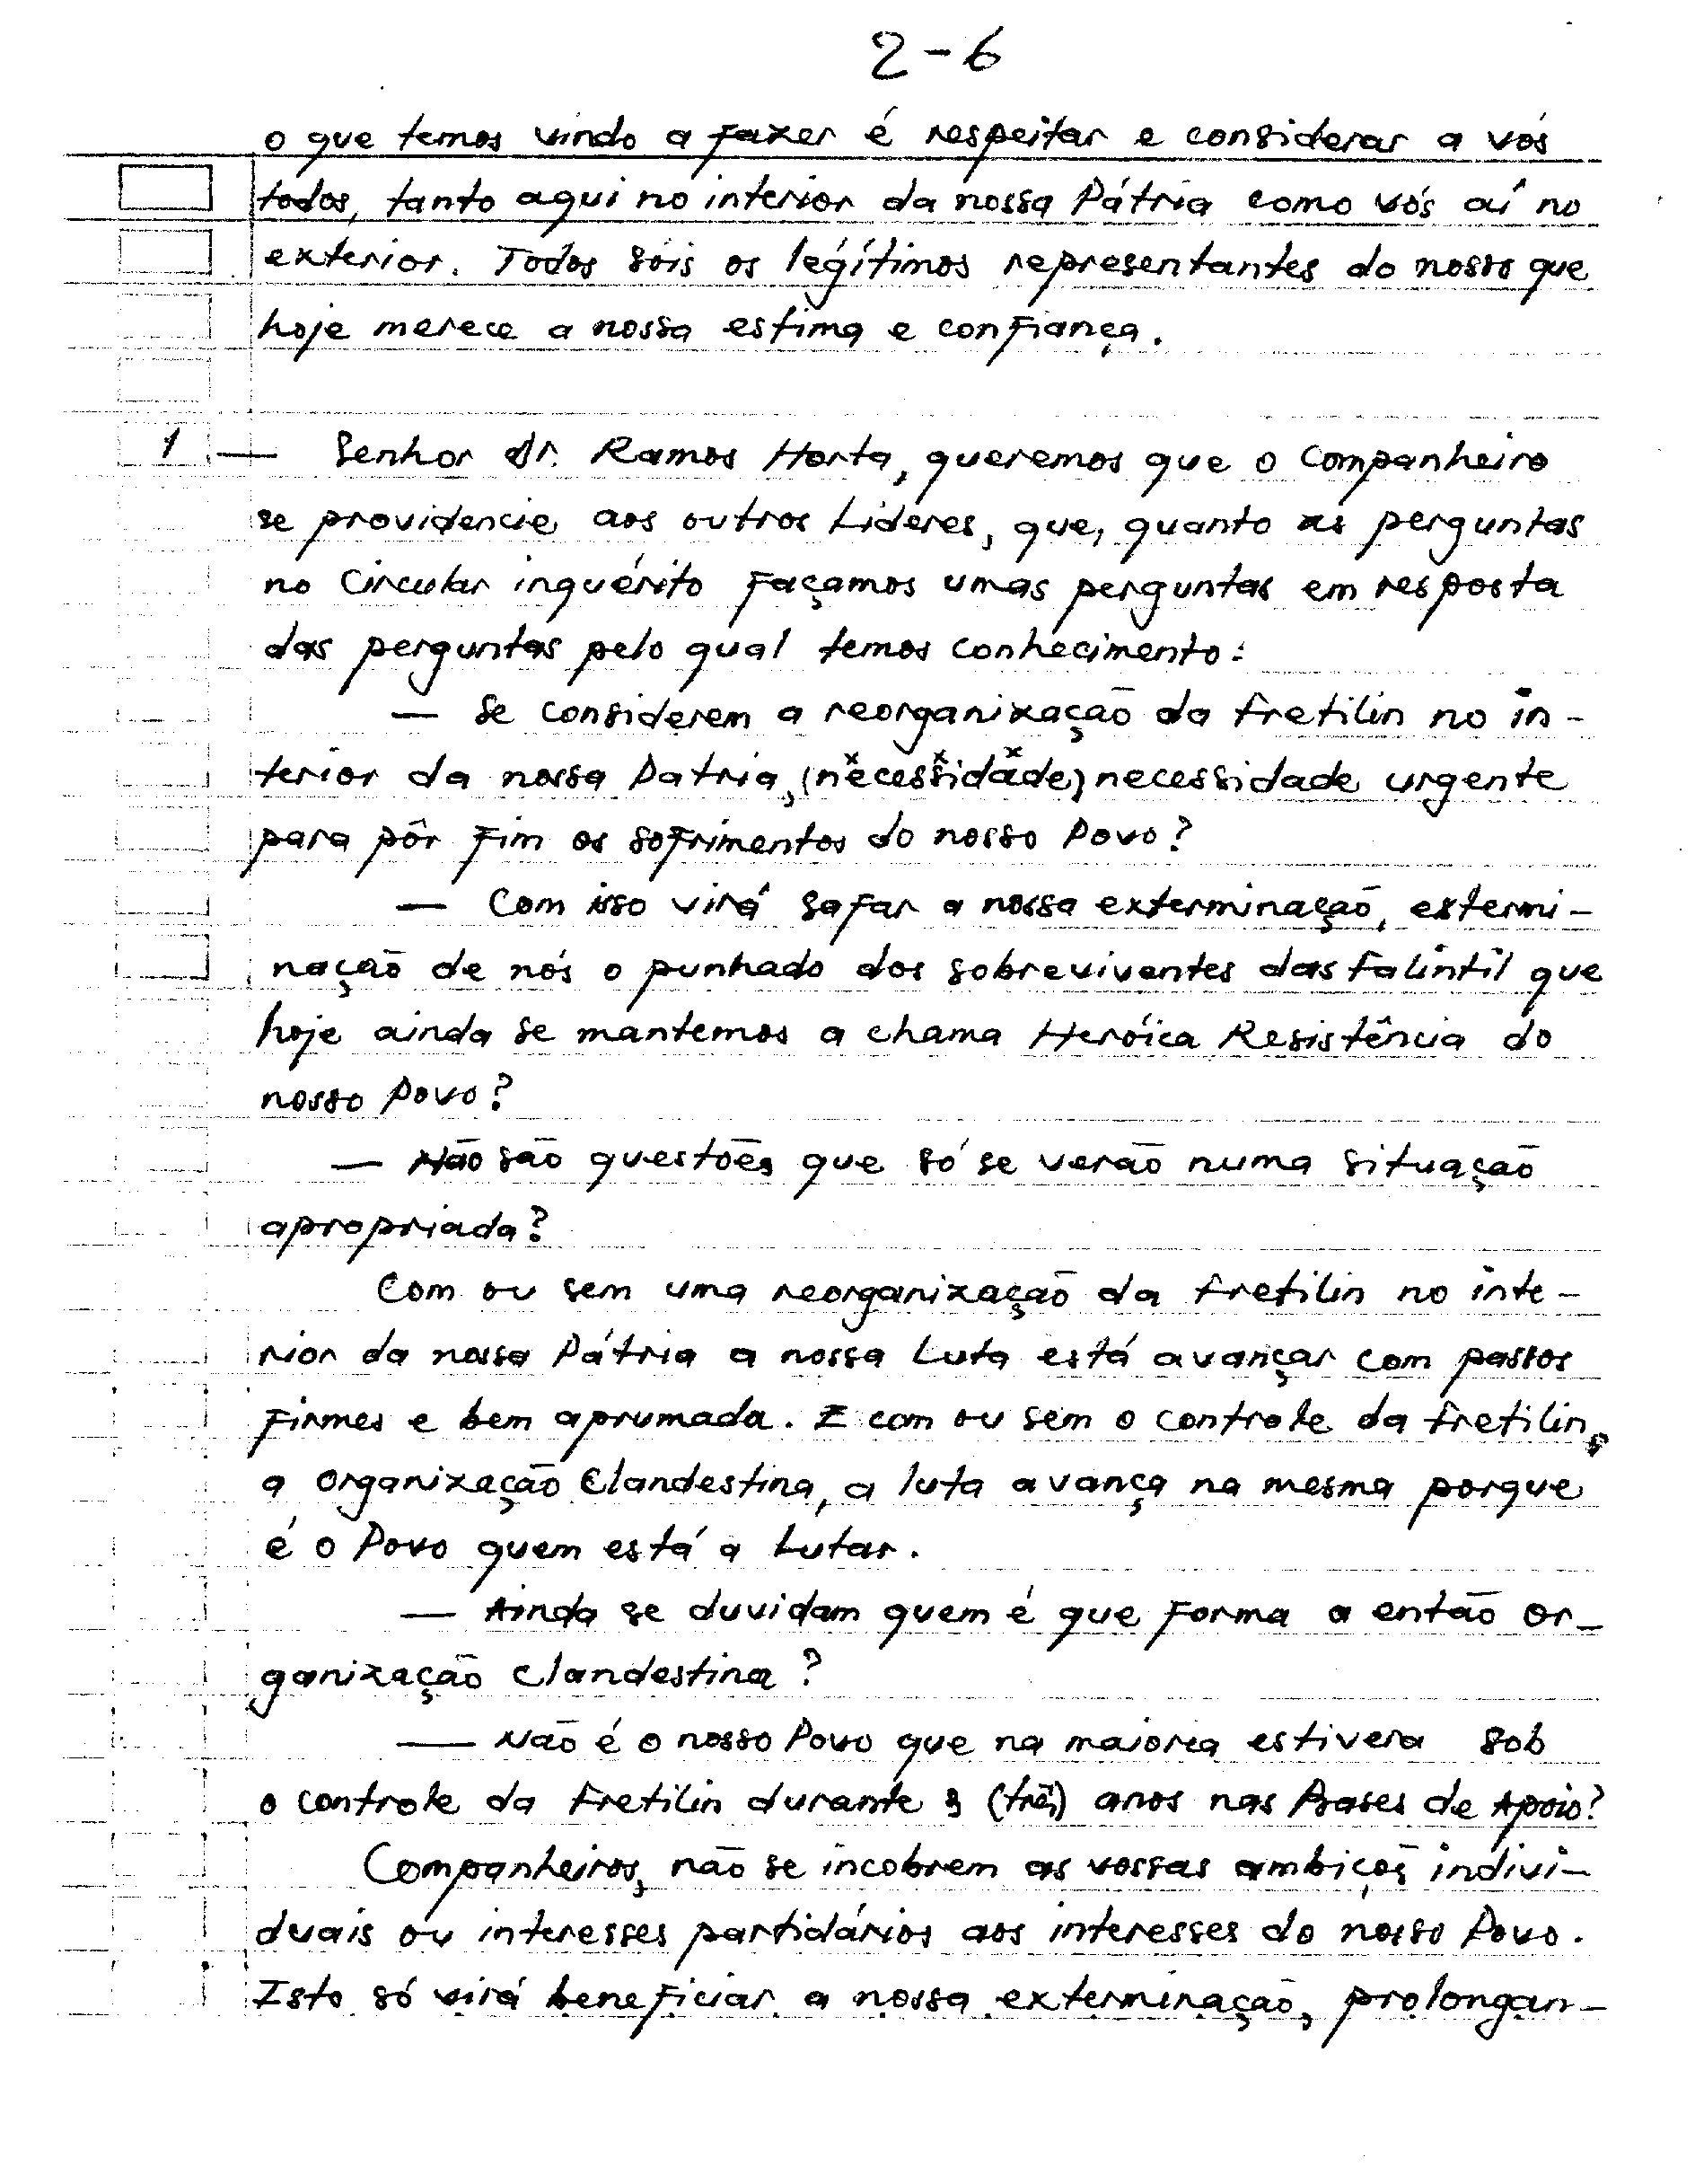 2-6
o que temos vindo a fazer é respeitar e considerar a vós
todos, tanto aqui no interior da nossa Pátria como vós aí no
exterior. Todos sois os legítimos representantes do nosso que
hoje merece a nossa estima e confiança.
1 — Senhor dr. Ramos Horta, queremos que o Companheiro
se providencie aos outros Líderes, que, quanto as perguntas
no Circular inquérito façamos umas perguntas em resposta
das perguntas pelo qual temos conhecimento:
— Se considerem a reorganização da Fretilin no in-
terior da nossa Patria, (necessidade) necessidade urgente
para pôr fim os sofrimentos do nosso Povo?
— Com isso virá safar a nossa exterminação, extermi-
nação de nós o punhado dos sobreviventes das Falintil que
hoje ainda se mantemos a chama Heróica Resistência do
nosso Povo?
— Não são questões que só se verão numa situação
apropriada?
Com ou sem uma reorganização da Fretilin no inte-
rior da nossa Pátria a nossa Luta está avançar com passos
firmes e bem aprumada. E com ou sem o controle da Fretilin,
a organização Clandestina, a luta avança na mesma porque
é o Povo quem está a Lutar.
— Ainda se duvidam quem é que forma a então or-
ganização clandestina?
— Não é o nosso Povo que na maioria estivera sob
o controle da Fretilin durante 3 (três) anos nas Bases de Apoio?
Companheiros, não se incobrem as vossas ambiçoẽs indivi-
duais ou interesses partidários aos interesses do nosso Povo.
Isto só virá beneficiar a nossa exterminação, prolongan-